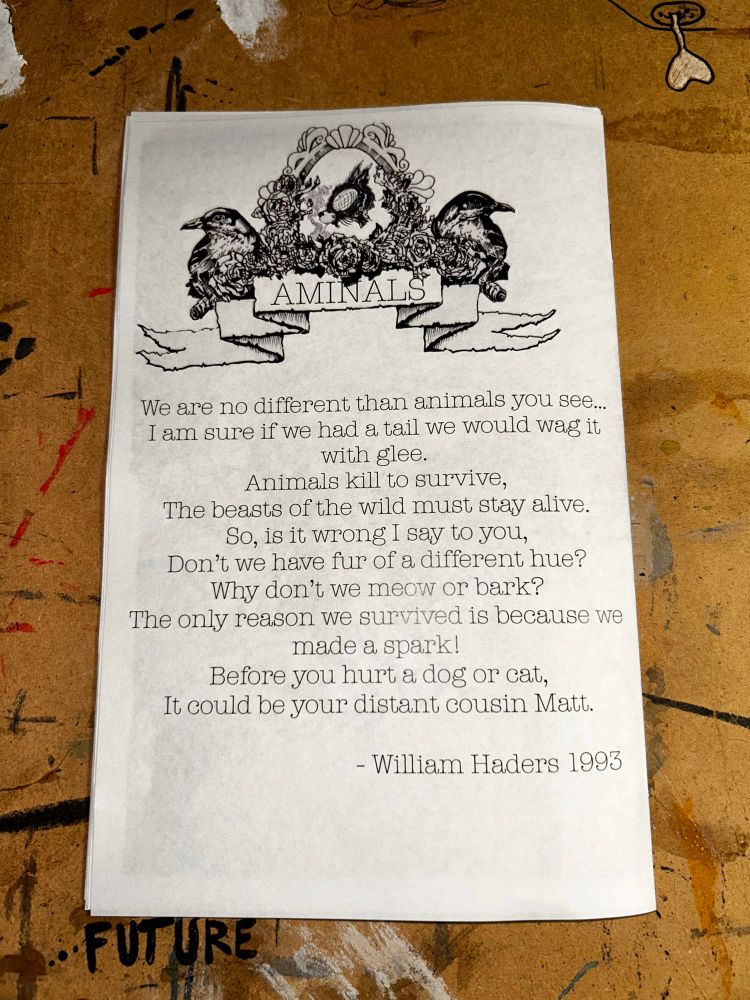 AMINALS
We are no different than animals you see...
I am sure if we had a tail we would wag it
with glee.
Animals kill to survive,
The beasts of the wild must stay alive.
So, is it wrong I say to you,
Don't we have fur of a different hue?
Why don't we meow or bark?
The only reason we survived is because we
made a spark!
Before you hurt a dog or cat,
It could be your distant cousin Matt.
- William Haders 1993
...FUTURE